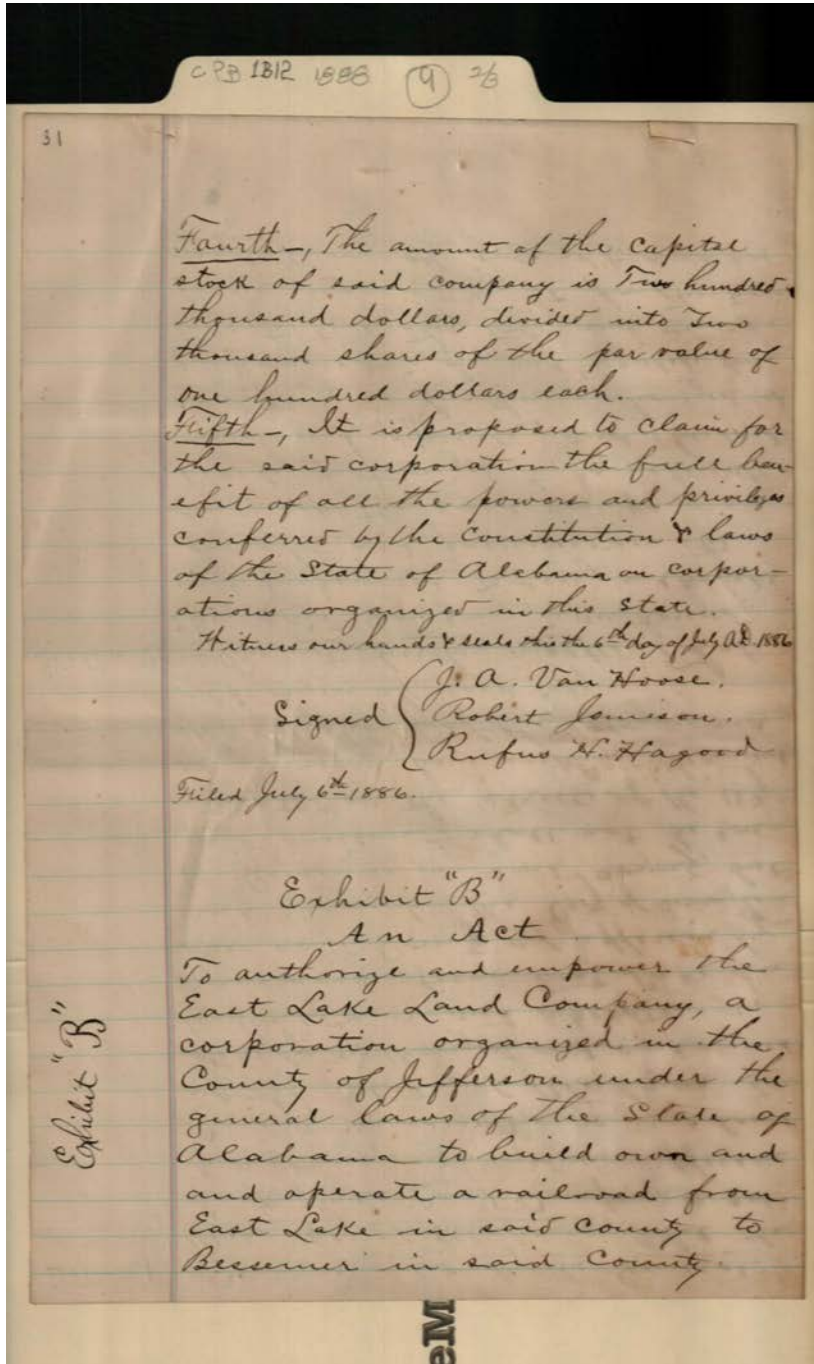 CPB 1312 1888 4 2/3
31
Fourth -, The amount of the capital
stock of said company is Two hundred
thousand dollars, divided into Two
thousand shares of the par value of
one hundred dollars each.
Fifth -, It is proposed to claim for
the said corporation the full ben-
efit of all the powers and privileges
conferred by the constitution & laws
of the State of Alabama on corpor-
ations organized in this State.
Witness our hands & seals this the 6th day of July A.D. 1886
J. A. Van Hoose.
Signed Robert Jamison.
Rufus N. Hagood
Filed July 6th 1886.
Exhibit "B"
An Act
To authorize and empower the
East Lake Land Company, a
corporation organized in the
County of Jefferson under the
general laws of the State of
Alabama to build own and
and operate a railroad from
East Lake in said county to
Bessemer in said County.
Exhibit "B"
eM